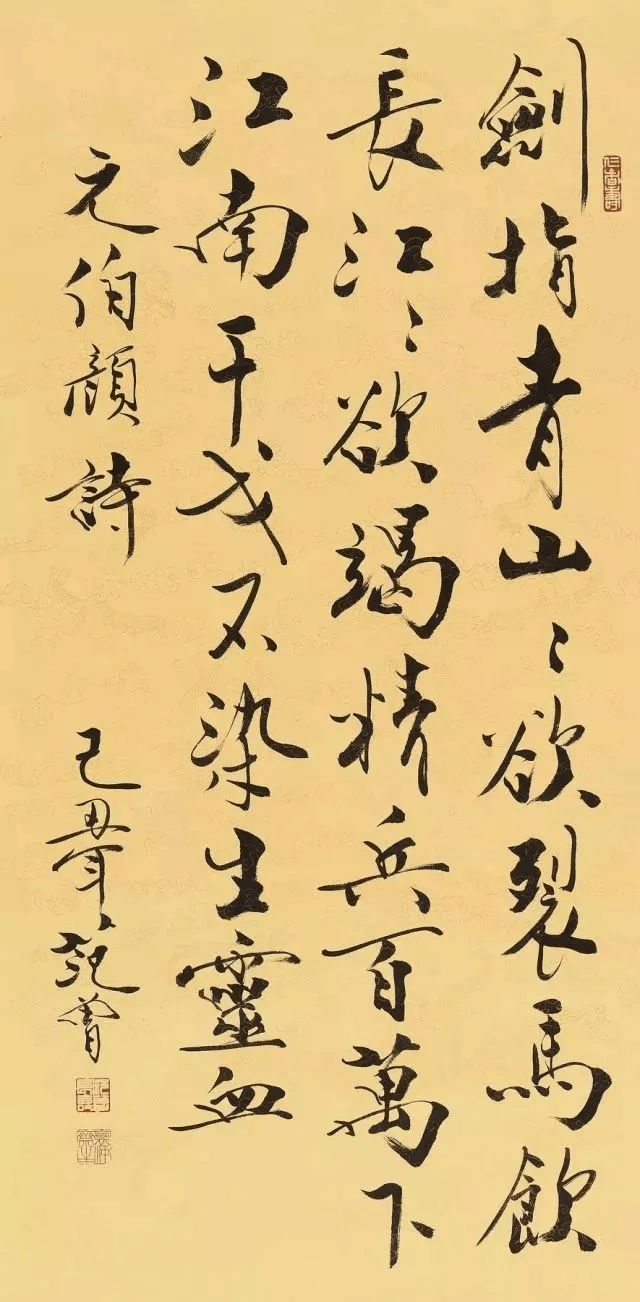 劍指青山〻欲裂馬飲
長江〻欲竭精兵百萬下
江南干戈不染生靈血
元伯顏詩
己丑年范曾
仁者壽